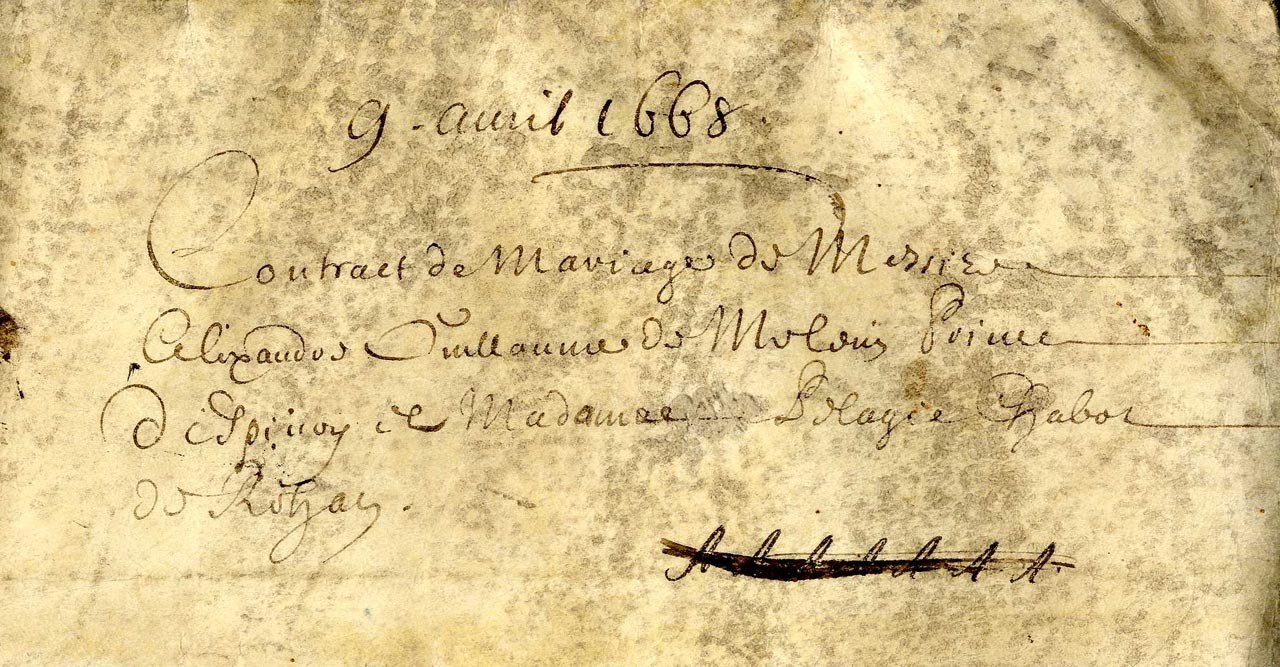 9. auril 1668
Contract de Mariage de Messire
Alixandre Guillaume de Meleun Prince
d'Espinoy et Madame Pelagie Chabot
de Rohan.
A A A A A A A